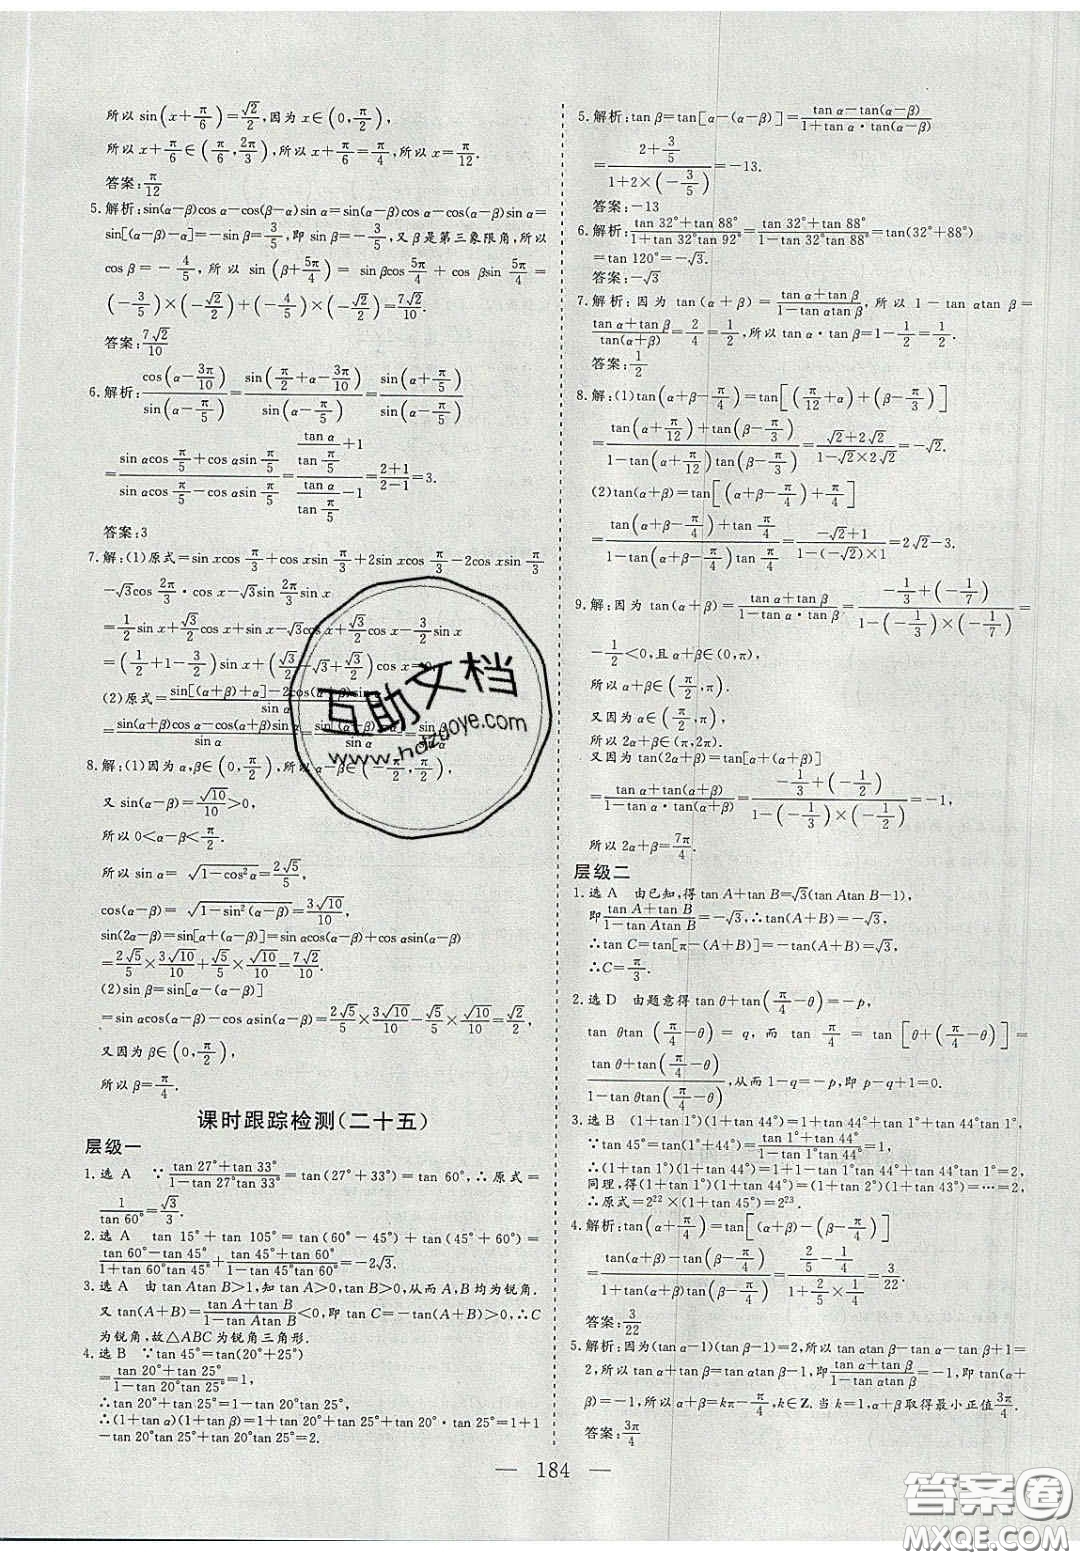 所以 sin(x+π/6)=√2/2,因为 x∈(0,π/2),
所以 x+π/6∈(π/6,2π/3),所以 x+π/6=π/4,所以 x=π/12.
答案:π/12
5.解析:sin(α−β)cos α−cos(β−α)sin α=sin(α−β)cos α−cos(α−β)sin α=
sin[(α−β)−α]=−sin β=3/5,即 sin β=−3/5,又 β 是第三象限角,所以
cos β=−4/5,所以 sin(β+5π/4)=sin βcos 5π/4+cos βsin 5π/4=
(−3/5)×(−√2/2)+(−4/5)×(−√2/2)=7√2/10.
答案:7√2/10
6.解析:cos(α−3π/10)/sin(α−π/5)=sin(π/2+α−3π/10)/sin(α−π/5)=sin(α+π/5)/sin(α−π/5)
=(sin αcos π/5+cos αsin π/5)/(sin αcos π/5−cos αsin π/5)=(tan α/tan π/5+1)/(tan α/tan π/5−1)=(2+1)/(2−1)=3.
答案:3
7.解:(1)原式=sin xcos π/3+cos xsin π/3+2sin xcos π/3−2cos xsin π/3
−√3cos 2π/3·cos x−√3sin 2π/3 sin x
=1/2 sin x+√3/2 cos x+sin x−√3cos x+√3/2 cos x−3/2 sin x
=(1/2+1−3/2)sin x+(√3/2−√3+√3/2)cos x=0.
(2)原式=sin[(α+β)+α]−2cos(α+β)sin α/sin α
=sin(α+β)cos α−cos(α+β)sin α/sin α=sin β/sin α
8.解:(1)因为 α,β∈(0,π/2),所以 α−β∈(−π/2,π/2),
又 sin(α−β)=√10/10>0,
所以 0<α−β<π/2.
所以 sin α=√(1−cos²α)=2√5/5,
cos(α−β)=√(1−sin²(α−β))=3√10/10,
sin(2α−β)=sin[α+(α−β)]=sin αcos(α−β)+cos αsin(α−β)
=2√5/5×3√10/10+√5/5×√10/10=7√2/10.
(2)sin β=sin[α−(α−β)]
=sin αcos(α−β)−cos αsin(α−β)=2√5/5×3√10/10−√5/5×√10/10=√2/2,
又因为 β∈(0,π/2),
所以 β=π/4.
课时跟踪检测(二十五)
层级一
1.选 A ∵(tan 27°+tan 33°)/(1−tan 27°tan 33°)=tan(27°+33°)=tan 60°,∴原式=
1/tan 60°=√3/3.
2.选 A tan 75°+tan 105°=tan(60°−45°)+tan(60°+45°)=
(tan 60°−tan 45°)/(1+tan 60°tan 45°)+(tan 60°+tan 45°)/(1−tan 60°tan 45°)=−2√3.
3.选 A 由 tan Atan B>1,知 tan A>0,tan B>0,从而 A,B 均为锐角.
又 tan(A+B)=(tan A+tan B)/(1−tan Atan B)<0,即 tan C=−tan(A+B)>0,∴C
为锐角,故△ABC 为锐角三角形.
4.选 B ∵tan 45°=tan(20°+25°)
=(tan 20°+tan 25°)/(1−tan 20°tan 25°)=1,
∴tan 20°+tan 25°=1−tan 20°tan 25°,
∴(1+tan α)(1+tan β)=1+tan 20°+tan 25°+tan 20°·tan 25°=1+1−
tan 20°tan 25°+tan 20°tan 25°=2.
5.解析:tan β=tan[α−(α−β)]=(tan α−tan(α−β))/(1+tan α·tan(α−β))
=(2+3/5)/(1+2×(−3/5))=−13.
答案:−13
6.解析:(tan 32°+tan 88°)/(1+tan 32°tan 92°)=(tan 32°+tan 88°)/(1−tan 32°tan 88°)=tan(32°+88°)
=tan 120°=−√3.
答案:−√3
7.解析:因为 tan(α+β)=(tan α+tan β)/(1−tan αtan β),所以 1−tan αtan β=
(tan α+tan β)/tan(α+β)=2/4=1/2,所以 tan α·tan β=1−1/2=1/2.
答案:1/2
8.解:(1)tan(α+β−π/4)=tan[(π/12+α)+(β−π/3)]
=(tan(α+π/12)+tan(β−π/3))/(1−tan(α+π/12)tan(β−π/3))=(√2+2√2)/(1−√2×2√2)=−√2.
(2)tan(α+β)=tan[(α+β−π/4)+π/4]
=(tan(α+β−π/4)+tan π/4)/(1−tan(α+β−π/4)tan π/4)=(−√2+1)/(1−(−√2)×1)=2√2−3.
9.解:因为 tan(α+β)=(tan α+tan β)/(1−tan α·tan β)=(−1/3+(−1/7))/(1−(−1/3)×(−1/7))=
−1/2<0,且 α+β∈(0,π),
所以 α+β∈(π/2,π).
又因为 α∈(π/2,π),
所以 2α+β∈(π,2π).
又因为 tan(2α+β)=tan[α+(α+β)]
=(tan α+tan(α+β))/(1−tan α·tan(α+β))=(−1/3+(−1/2))/(1−(−1/3)×(−1/2))=−1,
所以 2α+β=7π/4.
层级二
1.选 A 由已知,得 tan A+tan B=√3(tan Atan B−1),
即(tan A+tan B)/(1−tan Atan B)=−√3,∴tan(A+B)=−√3,
∴tan C=tan[π−(A+B)]=√3,
∴C=π/3.
2.选 D 由题意得 tan θ+tan(π/4−θ)=−p,
tan θtan(π/4−θ)=q,而 tan π/4=tan[θ+(π/4−θ)]=
(tan θ+tan(π/4−θ))/(1−tan θtan(π/4−θ)),从而 1−q=−p,即 p−q+1=0.
3.选 B (1+tan 1°)(1+tan 44°)=1+tan 44°+tan 1°+tan 1°tan 44°,
∵tan 45°=tan(1°+44°)=(tan 1°+tan 44°)/(1−tan 1°tan 44°)=1,
∴(1+tan 1°)(1+tan 44°)=1+1−tan 1°tan 44°+tan 1°tan 44°=2,
同理,得(1+tan 2°)(1+tan 43°)=(1+tan 3°)(1+tan 42°)=…=2,
∴原式=2²²×(1+tan 45°)=2²³.
4.解析:tan(α+π/4)=tan[(α+β)−(β−π/4)]
=(tan(α+β)−tan(β−π/4))/(1+tan(α+β)tan(β−π/4))=(2/5−1/4)/(1+2/5×1/4)=3/22.
答案:3/22
5.解析:因为(tan α−1)(tan β−1)=2,所以 tan αtan β−tan α−tan β+1=
2,所以 tan α+tan β=tan αtan β−1,即(tan α+tan β)/(1−tan αtan β)=−1,即 tan(α+
β)=−1,所以 α+β=kπ−π/4,k∈Z.当 k=1,α+β 取得最小正值3π/4.
答案:3π/4
— 184 —
互助文档
www.hdzuoye.com
答案圈
MXQE.COM